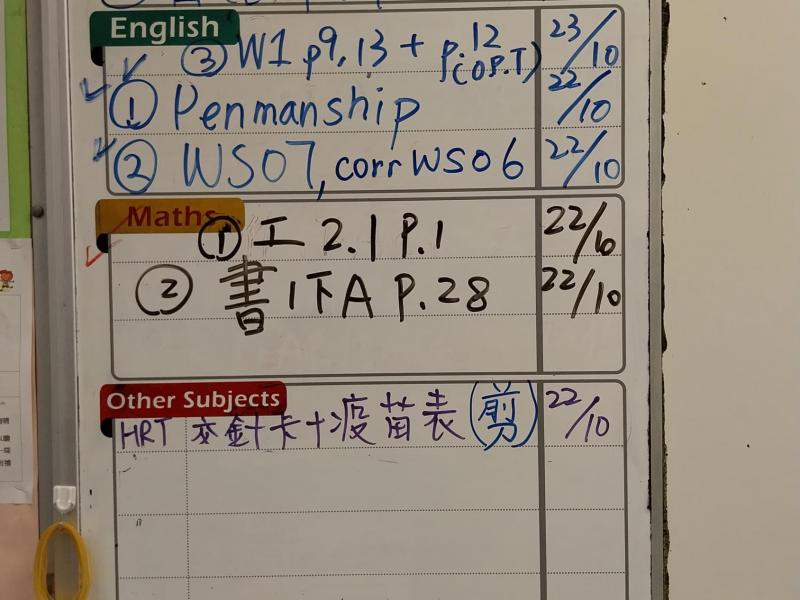 English
③ W1 p9, 13 + p.12 (OP.T) 23/10
① Penmanship 22/10
② WS07, corr WS06 22/10
Maths
① 工 2.1 P.1 22/10
② 書1下A P.28 22/10
Other Subjects
HRT 交針卡+疫苗表(剪) 22/10